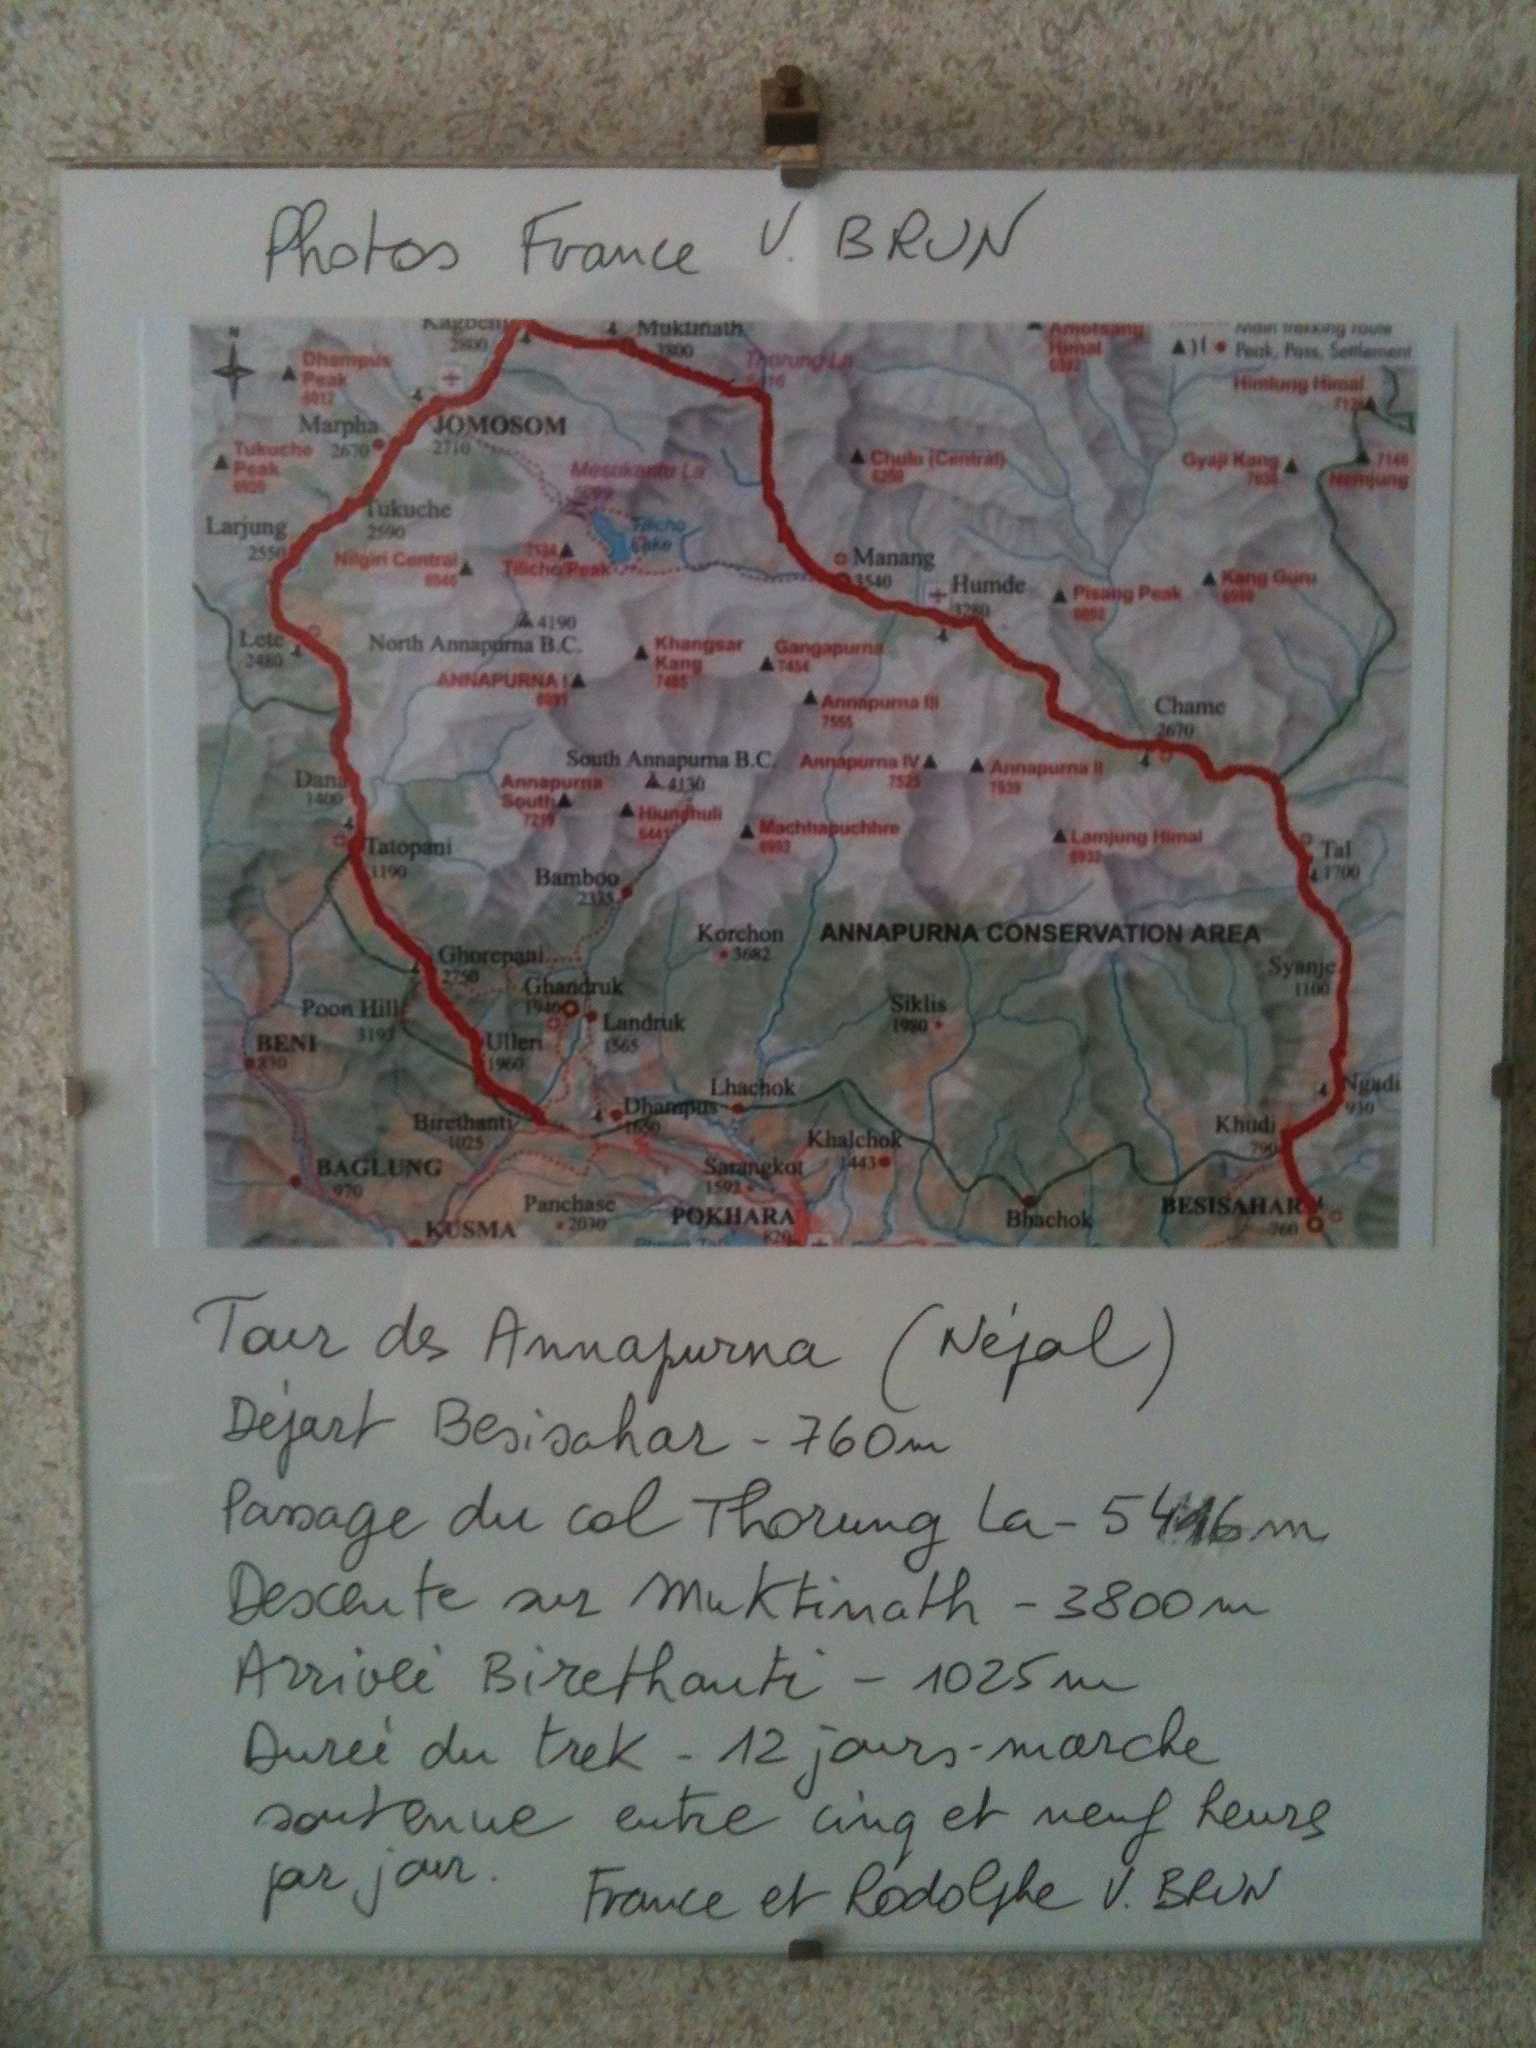 Photos France V. BRUN
Kagbeni
2800
Muktinath
3800
Thorung La
Amotsang
Himal
Main trekking route
Peak, Pass, Settlement
N
Dhampus
Peak
6012
Himlung Himal
JOMOSOM
2710
Marpha
2670
Tukuche
Peak
6920
Mesokanto La
Chulu (Central)
Gyaji Kang
Nemjung
Tukuche
2590
Larjung
2550
Tilicho
Lake
Nilgiri Central
6940
7134
Tilicho Peak
Manang
3540
Humde
3280
Pisang Peak
6092
Kang Guru
Lete
2480
4190
North Annapurna B.C.
Khangsar
Kang
7485
Gangapurna
7454
ANNAPURNA I
8091
Annapurna III
7555
Chame
2670
South Annapurna B.C.
4130
Annapurna IV
7525
Annapurna II
7939
Dana
1400
Annapurna
South
7219
Hiunchuli
6441
Machhapuchhre
6993
Lamjung Himal
6932
Tatopani
1190
Tal
1700
Bamboo
2335
Korchon
3682
ANNAPURNA CONSERVATION AREA
Ghorepani
2750
Syanje
1100
Ghandruk
1940
Poon Hill
3193
Landruk
1565
Siklis
1980
BENI
830
Ulleri
1960
Lhachok
Ngadi
930
Birethanti
1025
Dhampus
1650
Khalchok
1443
Khudi
790
BAGLUNG
970
Sarangkot
1592
Panchase
2030
POKHARA
820
Bhachok
BESISAHAR
760
KUSMA
Tour des Annapurna (Népal)
Départ Besisahar - 760m
Passage du col Thorung La - 5416m
Descente sur Muktinath - 3800m
Arrivée Birethanti - 1025m
Durée du trek - 12 jours - marche
soutenue entre cinq et neuf heures
par jour.
France et Rodolphe V. BRUN